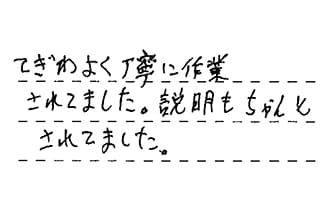 てぎわよく丁寧に作業
されてました。説明もちゃんと
されてました。